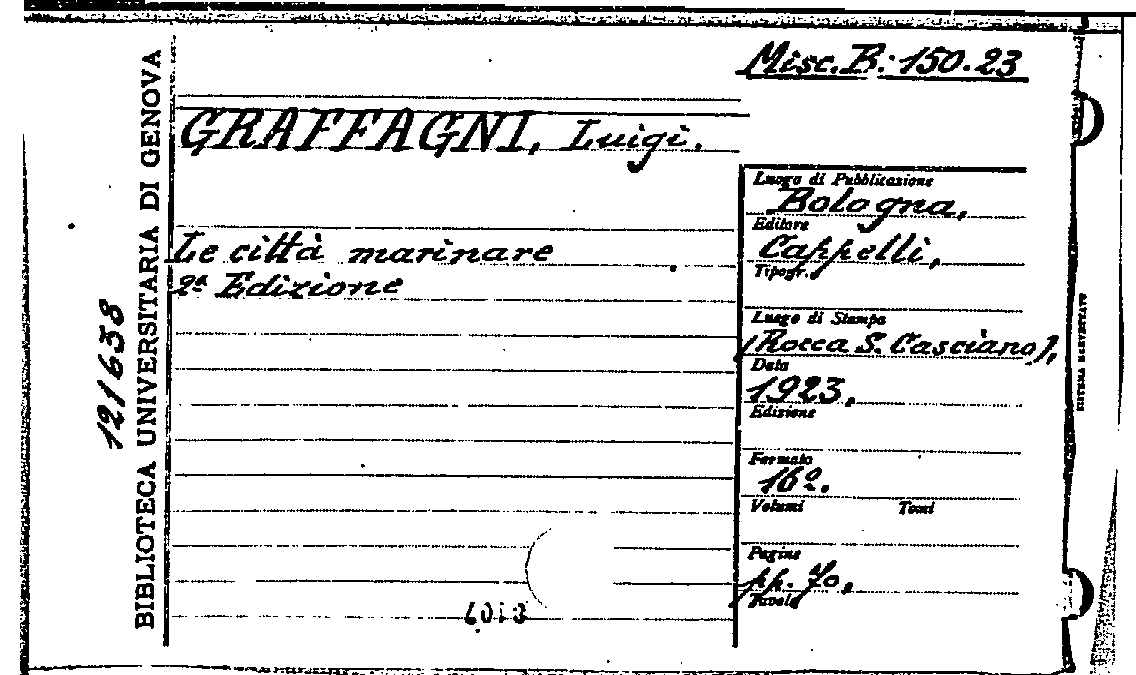 Misc. B. 150.23
GRAFFAGNI, Luigi.
Le città marinare
2ª Edizione
Luogo di Pubblicazione
Bologna,
Editore
Cappelli,
Tipogr.
Luogo di Stampa
(Rocca S. Casciano),
Data
1923.
Edizione
Formato
16º.
Volumi Tomi
Pagine
pp. 70,
Tavole
BIBLIOTECA UNIVERSITARIA DI GENOVA
121638